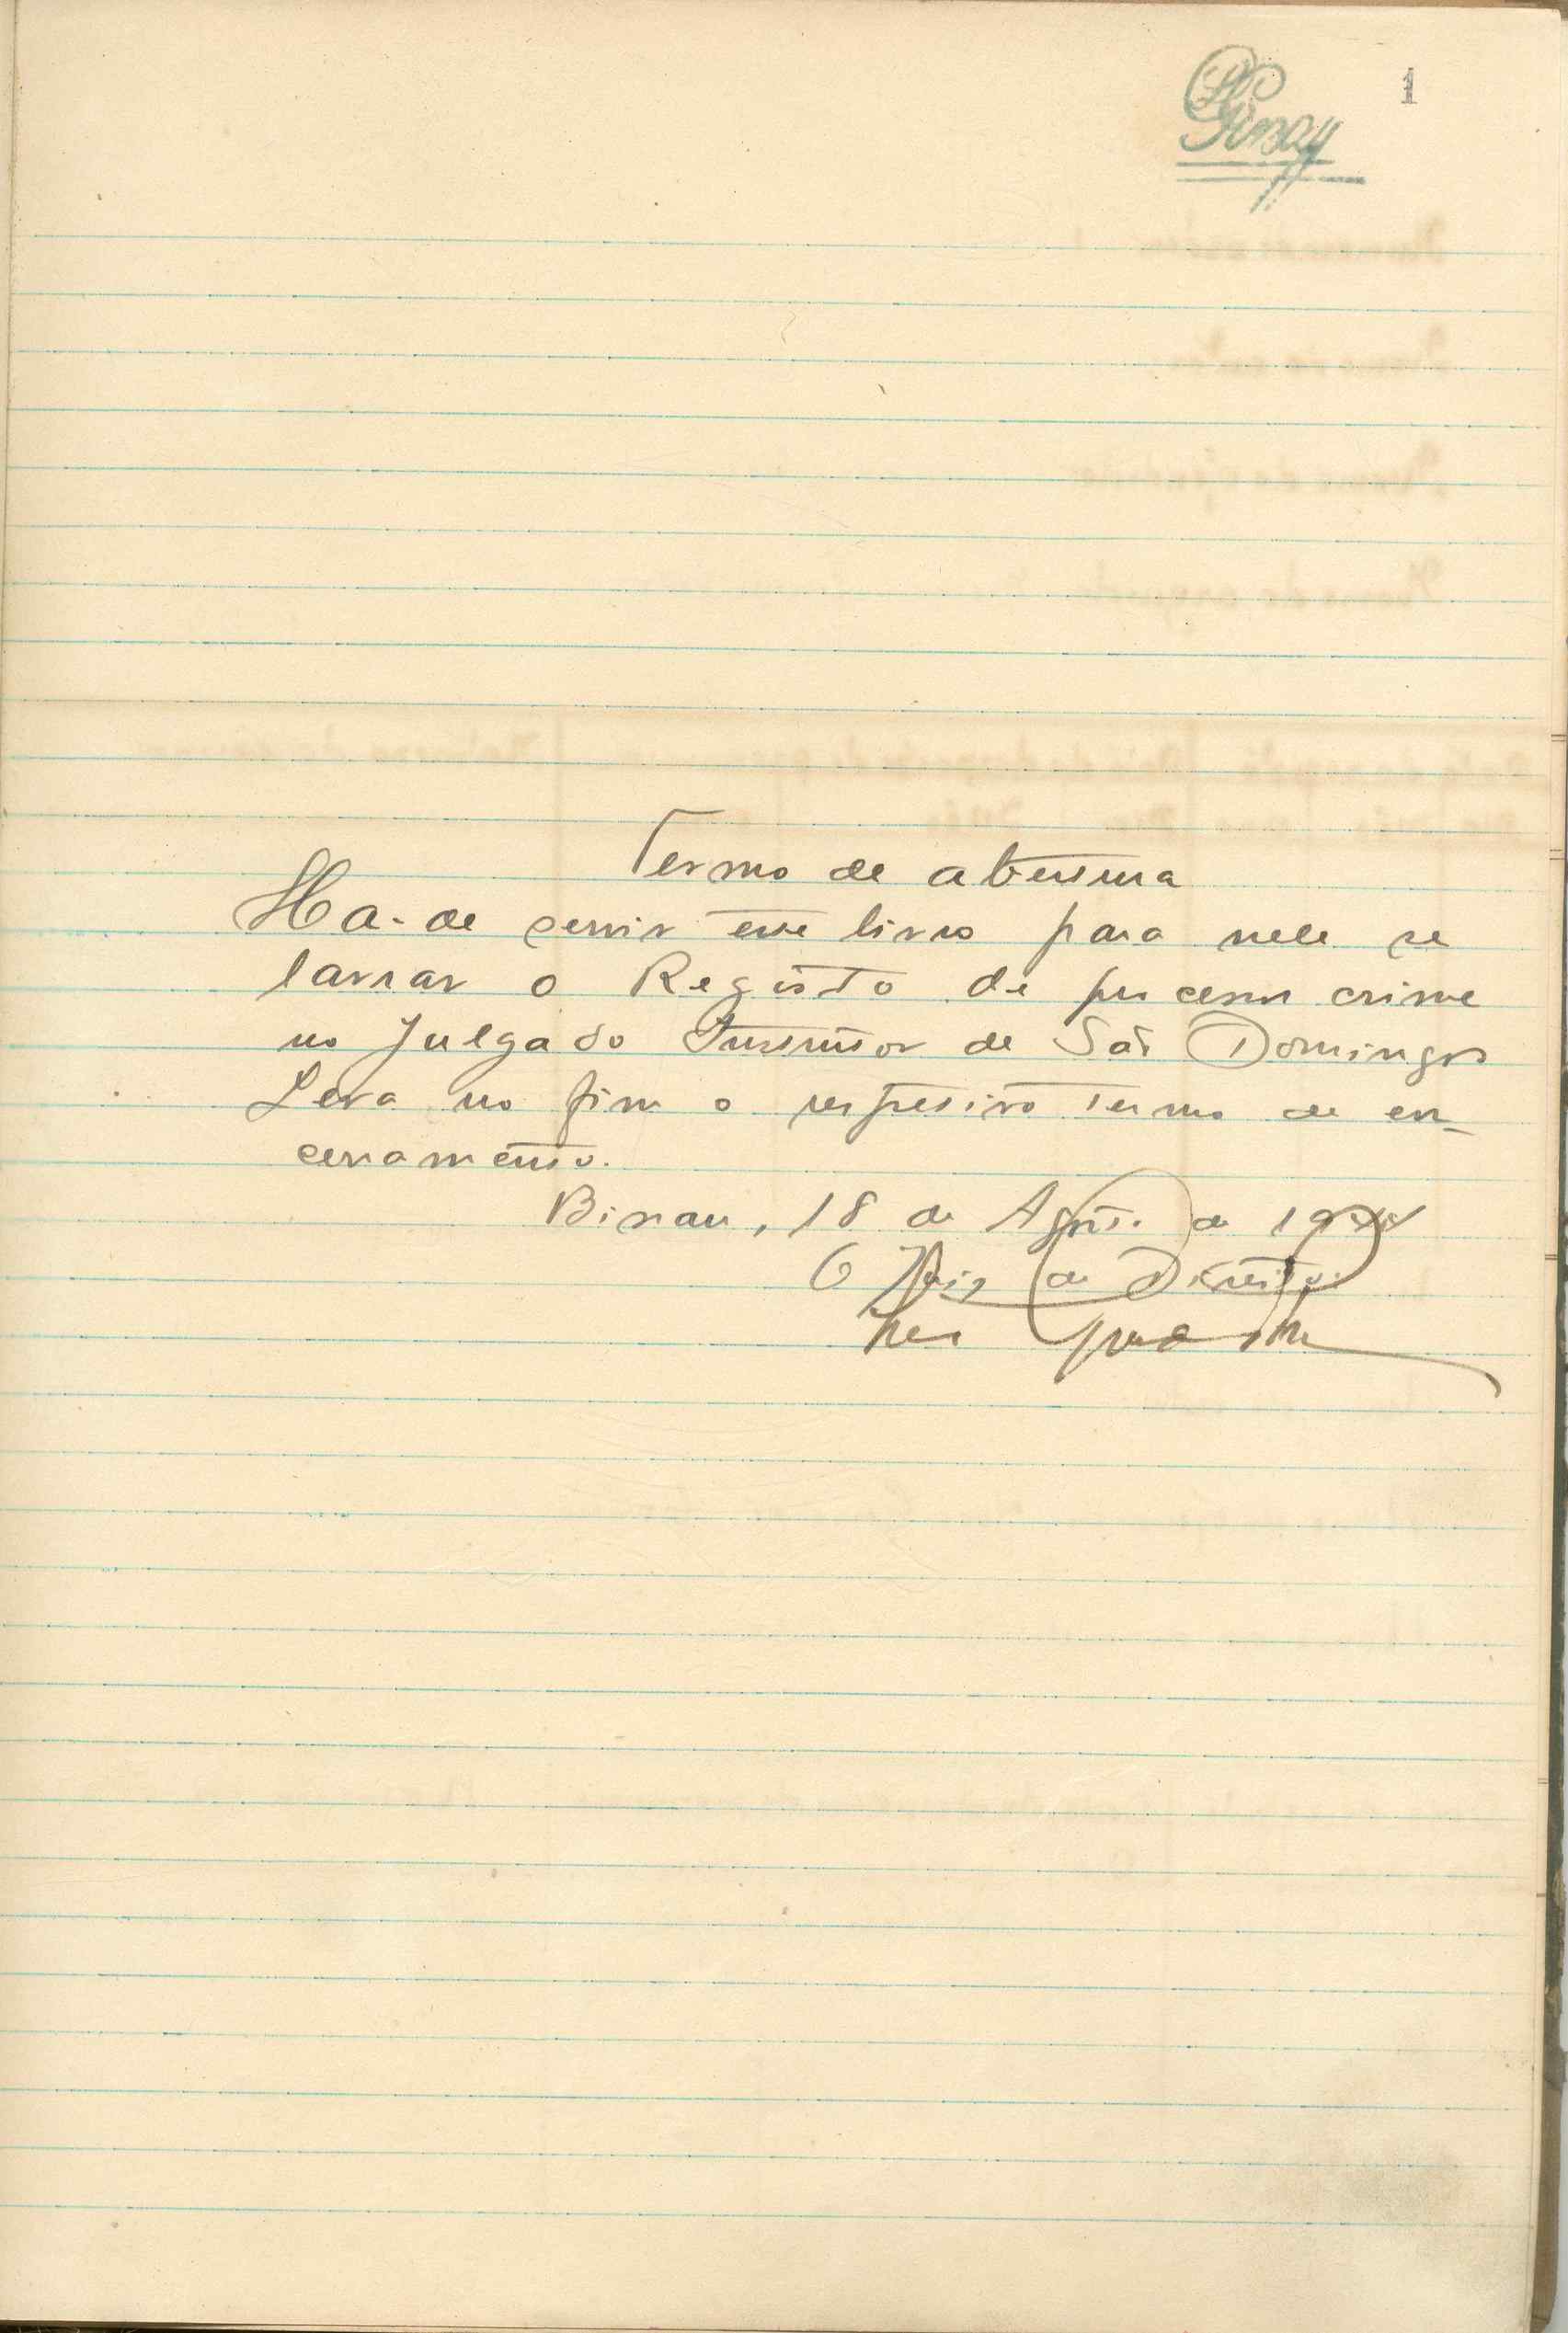 1
Termo de abertura
Ha-de servir este livro para nele se
lavrar o Registo de processo crime
no Julgado Instrutor de São Domingos
Leva no fim o respetivo termo de en-
cerramento.
Bissau, 18 de Agosto de 19
O Juiz de Direito